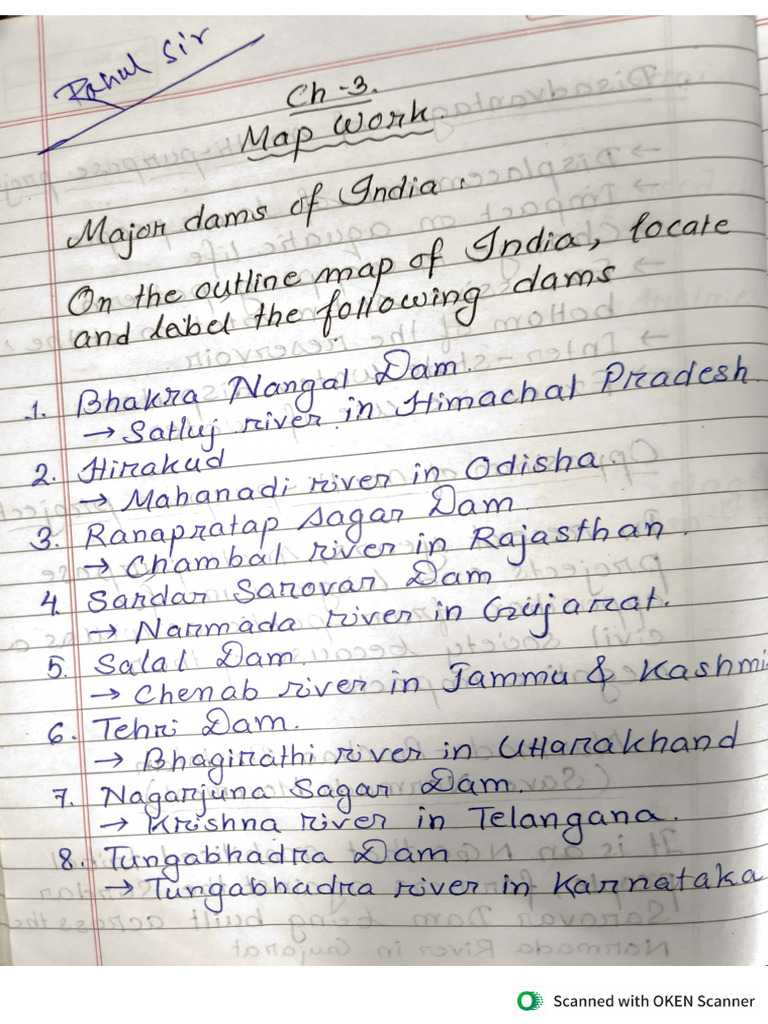 Rahul Sir
Ch-3.
Map Work.
Major dams of India.
On the outline map of India, locate
and label the following dams
1. Bhakra Nangal Dam.
→ Satluj river in Himachal Pradesh.
2. Hirakud
→ Mahanadi river in Odisha.
3. Ranapratap Sagar Dam.
→ Chambal river in Rajasthan.
4. Sardar Sarovar Dam
→ Narmada river in Gujarat.
5. Salal Dam.
→ Chenab river in Jammu & Kashmi
6. Tehri Dam.
→ Bhagirathi river in Uttarakhand
7. Nagarjuna Sagar Dam.
→ Krishna river in Telangana.
8. Tungabhadra Dam
→ Tungabhadra river in Karnataka
Scanned with OKEN Scanner